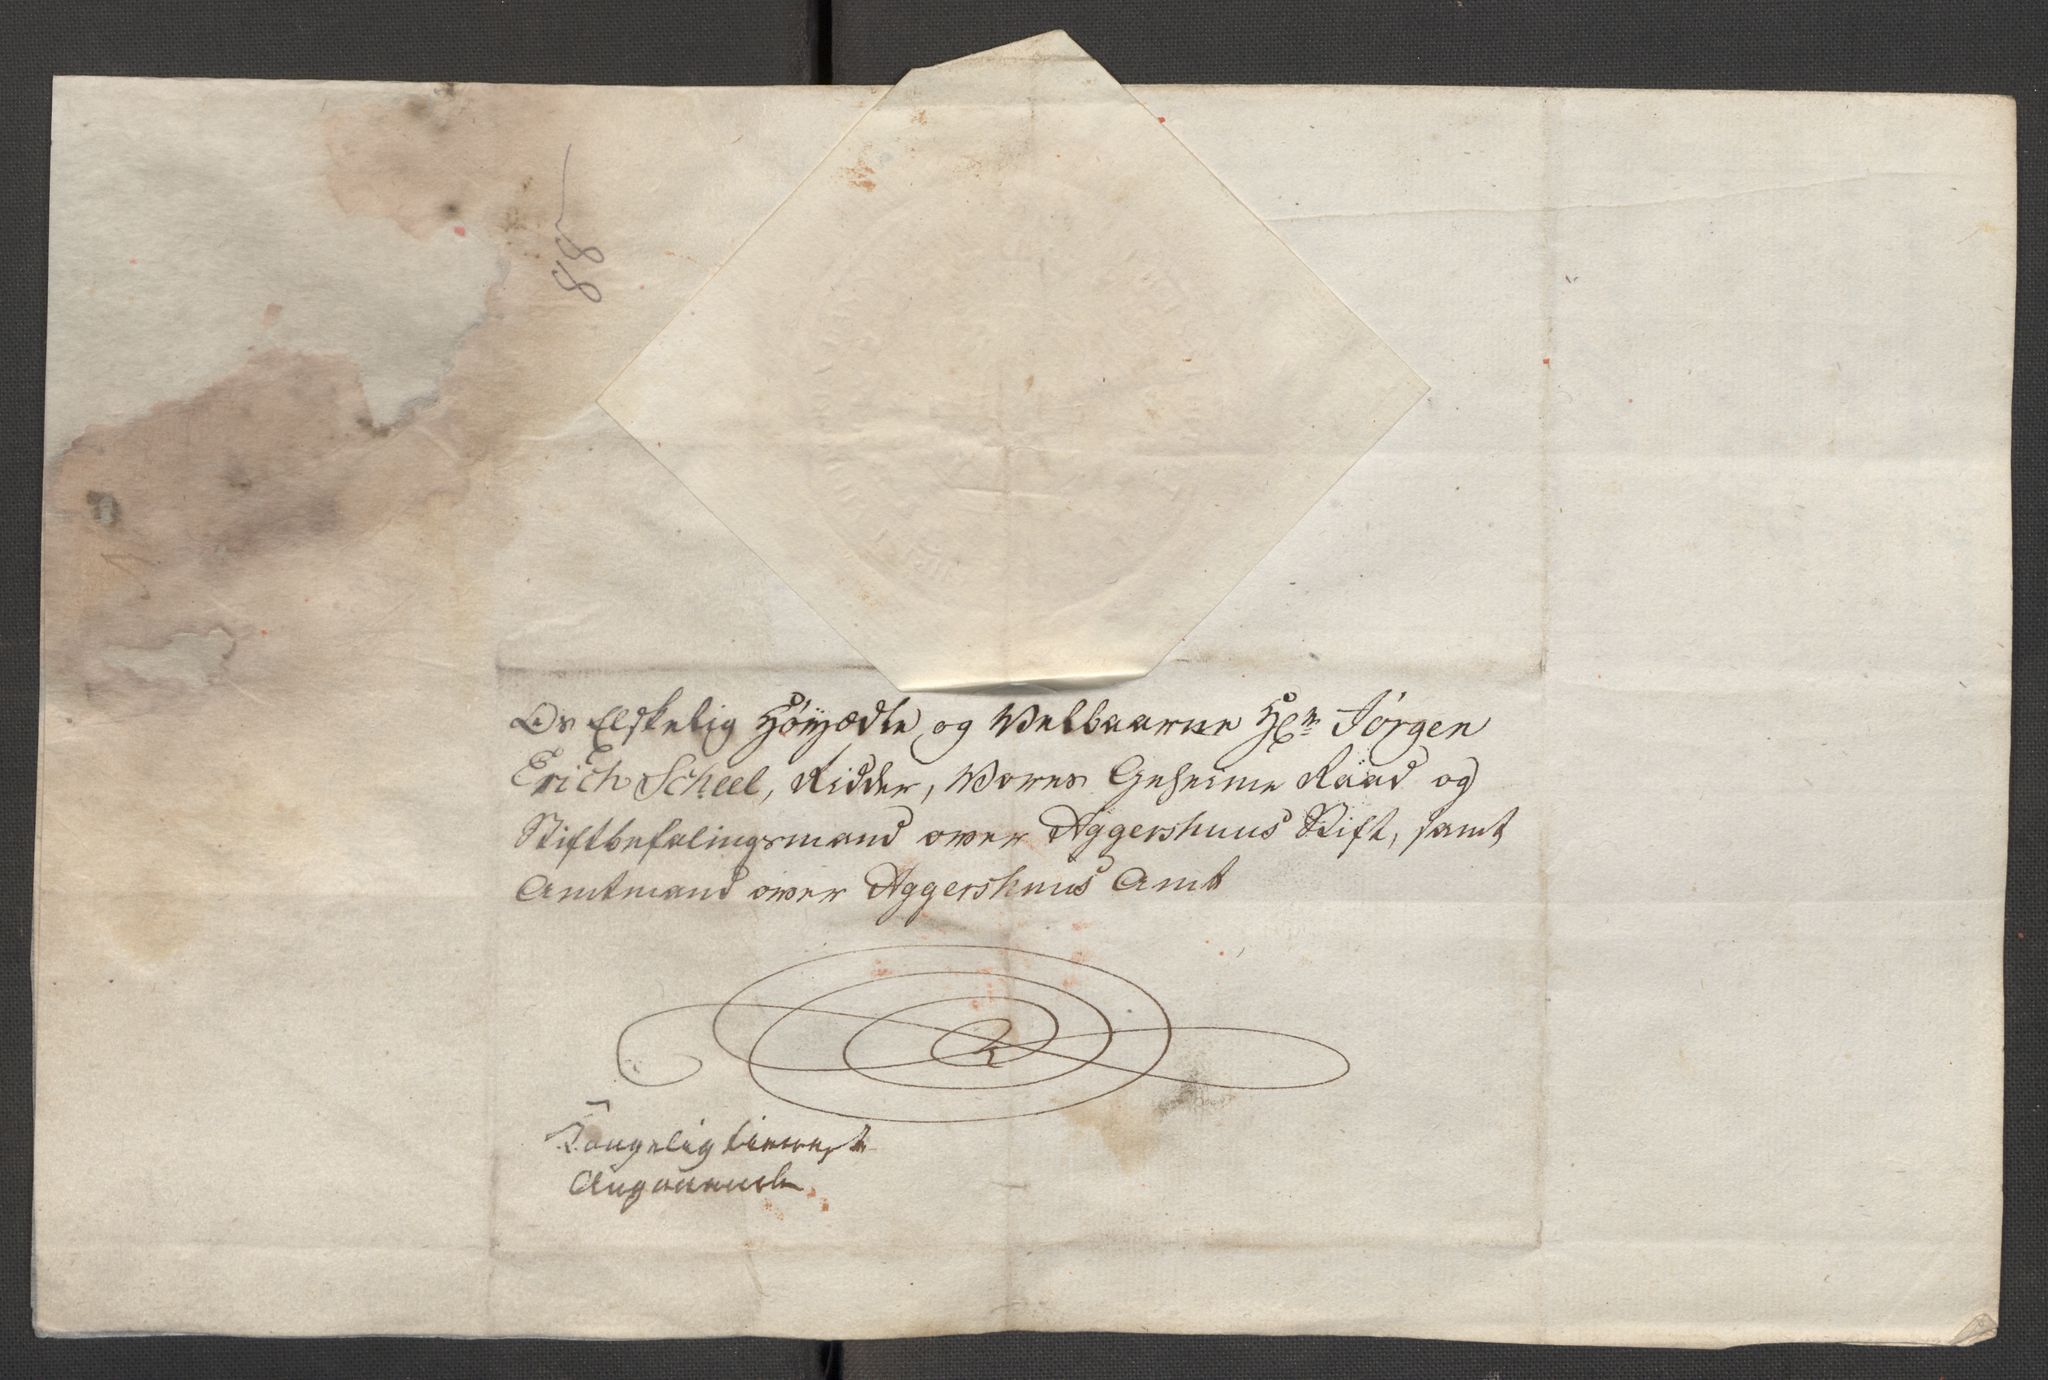 88
Os Elskelig Höyædle og Welbaarne Hr. Jörgen
Erich Scheel, Ridder, Wores Geheime Raad og
Stiftbefalingsmand over Aggershuus Stift, samt
Amtmand over Aggershuus Amt
Kongelig tieneste
Angaaende